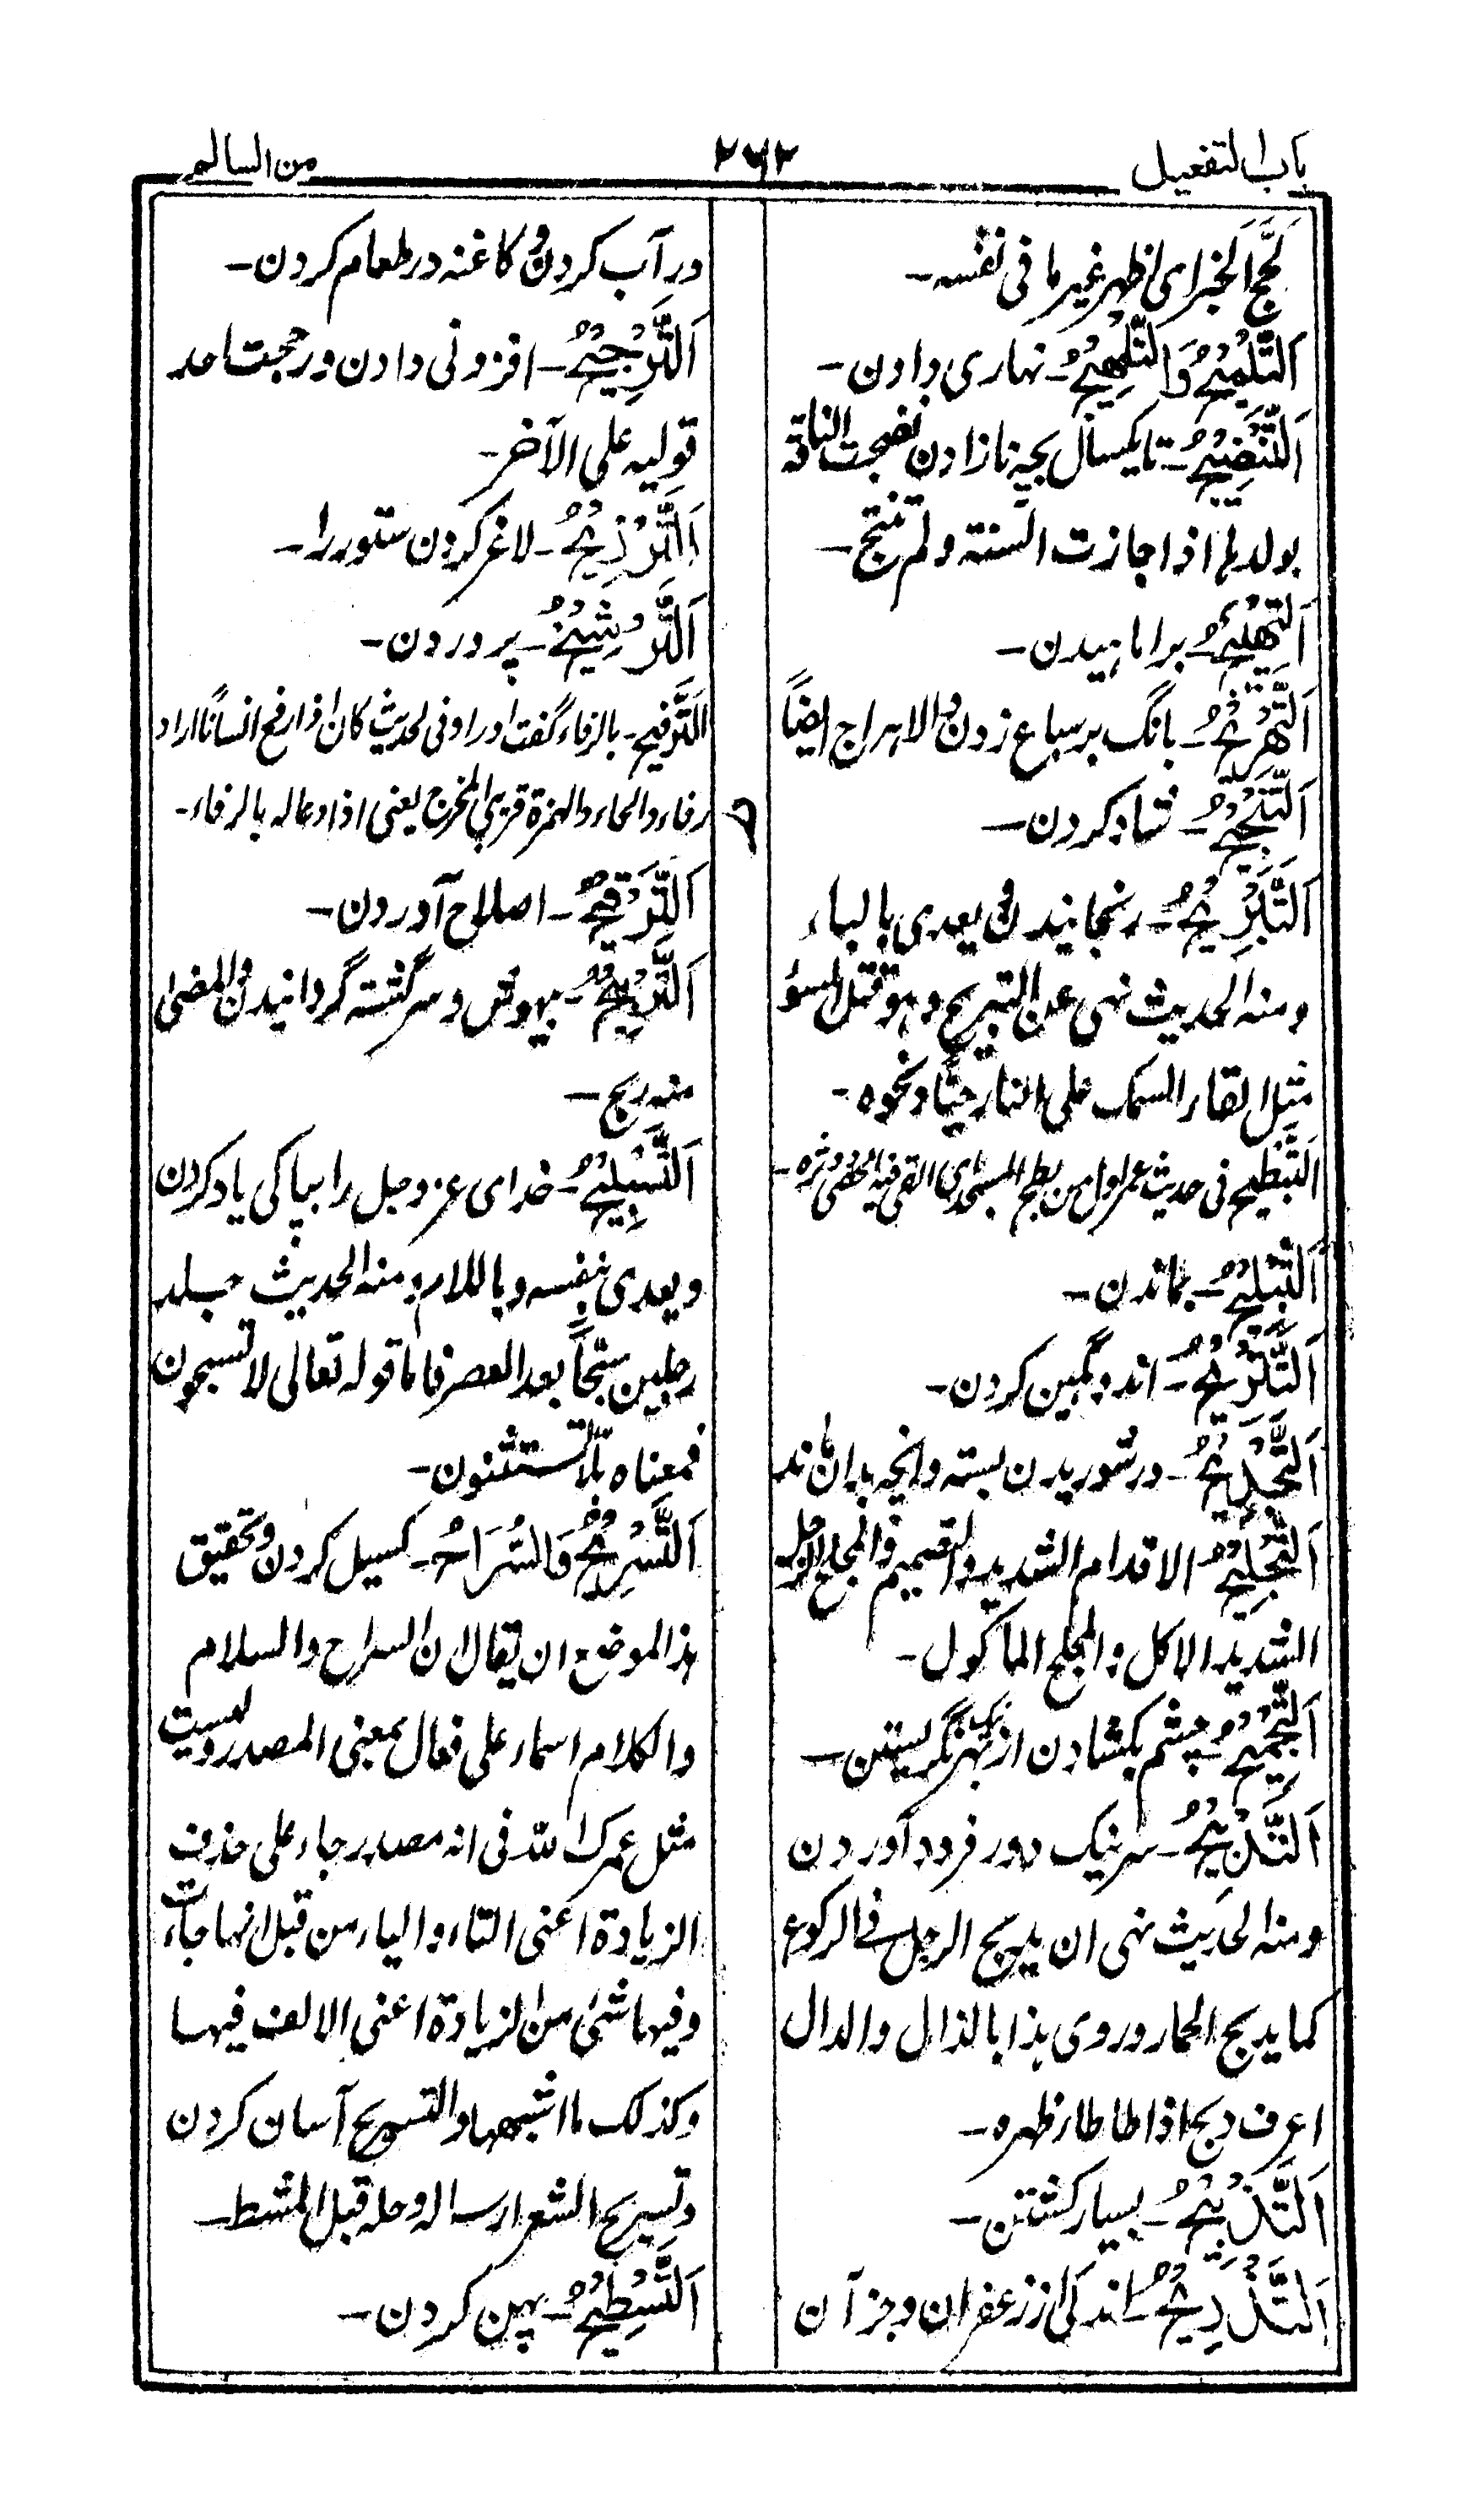 باب التفعیل
۲۶۲
من السالم
لهج الخبر ای اظهر غیر ما فی نفسه ـ
اَلتَّلْمِيْجُ وَالتَّلْهِيْجُ ـ نهاری دادن ـ
اَلتَّنْضِيْجُ ـ تا یکسال بچه نازادن نضجت الناقة
بولدها اذا جازت السنة و لم تنتج ـ
اَلتَّهْيِيْجُ ـ برا ماهیدن ـ
اَلتَّهْرِيْجُ ـ بانگ بر سباع زدن والاهراج ایضاً
ح
اَلتَّبْجِيْحُ ـ شاد کردن ـ
اَلتَّبْرِيْحُ ـ رنجانیدن و یعدی بالباء
ومنه الحدیث نهی عن التبریح و هو قتل السوء
مثل القاء السمک علی النار حیّا و نحوه ـ
التبطیح فی حدیث عمر اول من بطح المسجد ای القی فیه الحصی و وثره ـ
اَلتَّبْلِيْحُ ـ بماندن ـ
اَلتَّتْرِيْحُ ـ اندوهگین کردن ـ
اَلتَّجْدِيْحُ ـ در شوریدن بسته و آنچه بدان ماند
اَلتَّجْلِيْحُ الاقدام الشدید والتصمیم و المجلح الرجل
الشدید الاکل والمجلح الماکول ـ
اَلتَّجْمِيْحُ ـ چشم بکشادن از بهر نگریستن ـ
اَلتَّدْبِيْحُ ـ سر نیک دور فرود آوردن
ومنه الحدیث نهی ان یدبح الرجل فی الرکوع
کما یدبح الحمار و روی هذا بالذال والدال
اعرف دبح اذا طاطا ظهره ـ
اَلتَّذْبِيْحُ ـ بسیار کشتن ـ
اَلتَّذْرِيْحُ ـ اندکی از زعفران و جز آن
در آب کردن و کاغنه در طعام کردن ـ
اَلتَّرْجِيْحُ ـ افزونی دادن و رجحت احد
قولیه علی الآخر ـ
اَلتَّرْزِيْحُ ـ لاغر کردن ستور را ـ
اَلتَّرْشِيْحُ ـ پروردن ـ
اَلتَّرْفِيْحُ ـ بالرفاء گفت اورا و فی الحدیث کان اذا رفح انسانًا اراد
رفاء والحاء والهمزة قریبا المخرج یعنی اذا دعا له بالرفاء ـ
اَلتَّرْقِيْحُ ـ اصلاح آوردن ـ
اَلتَّرْنِيْحُ ـ بیهوش و سرگشته گردانیدن والمضی
منه رنح ـ
اَلتَّسْبِيْحُ ـ خدای عز و جل را بپاکی یاد کردن
و یعدی بنفسه و باللام و منه الحدیث جلد
رجلین سبّحا بعد العصر فاما قوله تعالی لا تسبحون
فمعناه هلّا تستثنون ـ
اَلتَّسْرِيْحُ وَالسَّرَاحُ ـ کسیل کردن و تحقیق
هذا الموضع ان یقال ان السراح والسلام
والکلام اسماء علی فعال بمعنی المصدر و لیست
مثل عمرک الله فی انه مصدر جاء علی حذف
الزیادة اعنی التاء والیاء من قبل انها جاءت
و فیها شیٔ من الزیادة اعنی الالف فیها
و کذلک ما اشبهها و التسریح آسان کردن
و تسریح الشعر ارساله و حله قبل المشط ـ
اَلتَّسْطِيْحُ ـ پهن کردن ـ